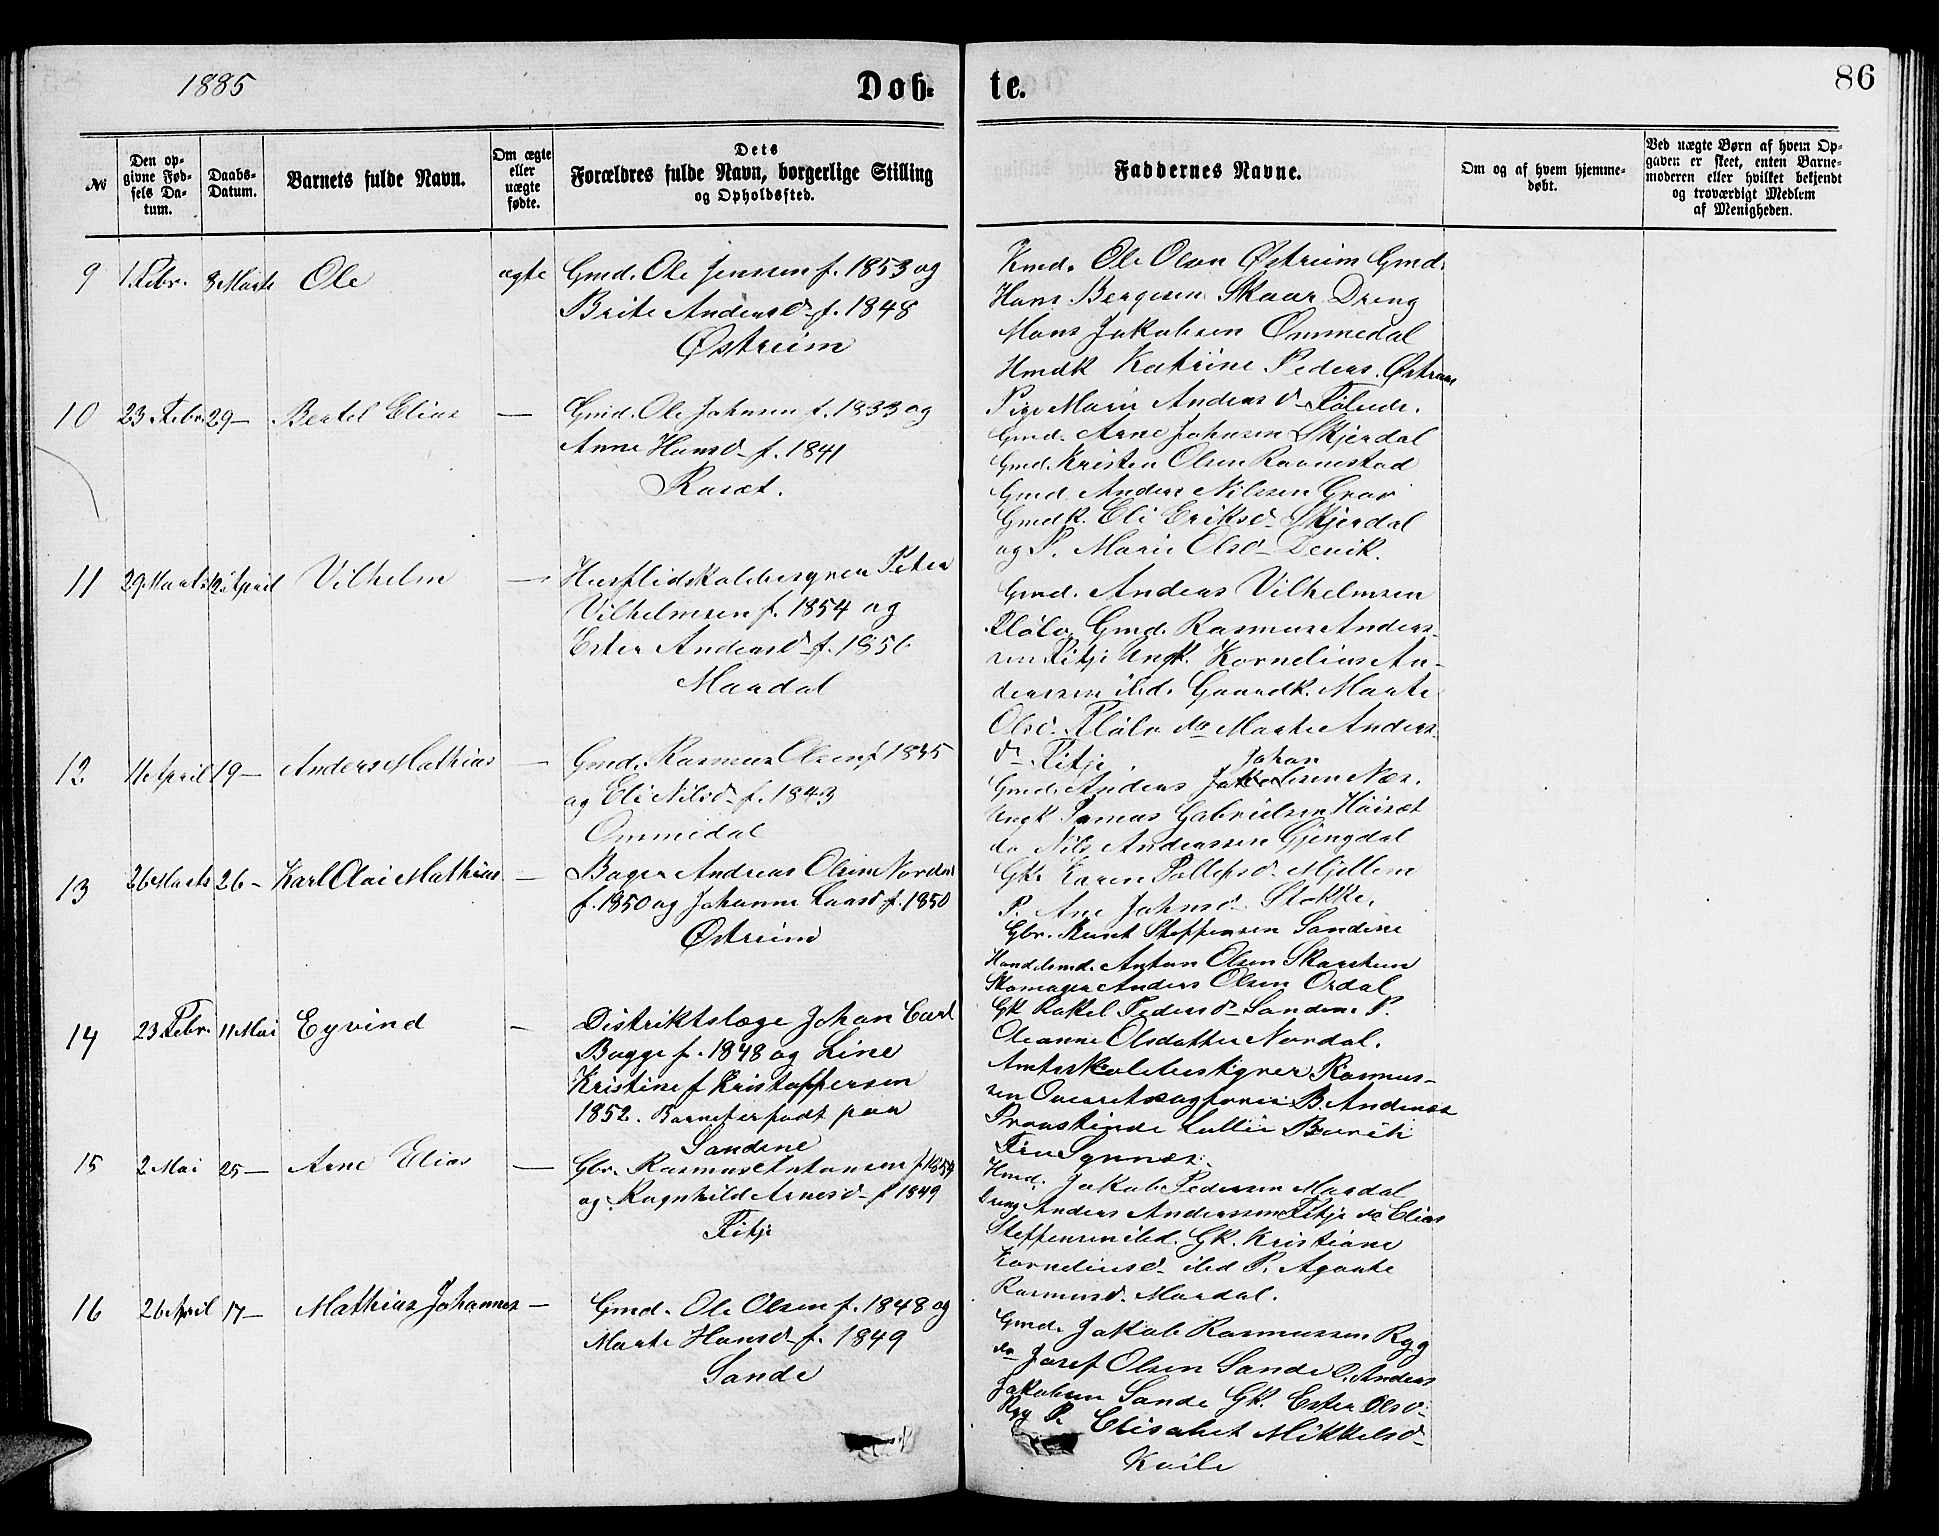 1885
Døb-
te.
86
№
Den op-
givne Fød-
sels Da-
tum.
Daabs-
Datum.
Barnets fulde Navn.
Om ægte
eller
uægte
fødte.
Dets
Forældres fulde Navn, borgerlige Stilling
og Opholdssted.
Faddernes Navne.
Om og af hvem hjemme-
døbt.
Ved uægte Børn af hvem Op-
gaven er skeet, enten Barne-
moderen eller hvilket bekjendt
og troværdigt Medlem
af Menigheden.
9 1 Febr. 8 Marts Ole ægte Gmd. Ole Jenssen f. 1853 og
Brite Andersd. f. 1848
Østreim
Kmd. Ole Olsen Østreim Gmd.
Hans Bergesen Skaar Dreng
Mons Jakobsen Ommedal
Hmdk Katrine Peders. Østreim
Pige Marie Andersd.
10 23 Febr. 29 — Bertel Elias — Gmd. Ole Johnsen f. 1833 og
Anne Hansd. f. 1841
Raset.
Gmd. Arne Johnsen Skjerdal
Gmd. Kristen Olsen Ravnestad
Gmd. Anders Nilssen Grov
Gmdk. Eli Eriksd. Skjerdal
og P. Marie Olsd. Devik.
11 29 Marts 12 April Vilhelm — Husflidskolebestyrer Peter
Vilhelmsen f. 1854 og
Ester Andersd. f. 1856
Mardal
Gmd. Anders Vilhelmsen
Fløilo, Gmd. Rasmus Anders-
sen Fitje Ungk. Kornelius An-
derssen ibd. Gaardk. Marte
Olsd. Fløilo do Marte Anders-
d. Fitje
12 11 April 19 — Anders Mathias — Gmd. Rasmus Olsen f. 1835
og Eli Nilsd. f. 1843
Ommedal
Johan
Gmd. Anders Jakobsen Nes.
Ungk Tomas Gabrielsen Høiset
do Nils Anderssen Gjengdal
Gk. Karen Pallesd. Mjellem
P. Ane Johnsd. Stokke.
13 26 Marts 26 — Karl Olai Mathias — Bager Andreas Olsen Nordal
f. 1850 og Johanne Larsd f. 1850
Østreim
Gbr. Bernt Steffensen Sandene
Handelsmd. Anton Olsen Skarstein
Skomager Anders Olsen Ordal
Gk Rakel Pedersd. Sandene P.
Oleanne Olsdatter Nordal.
14 23 Febr. 11 Mai Eyvind — Distriktslæge Johan Carl
Bugge f. 1848 og Line
Kristine f Kristoffersen
1852. Barnet er født paa
Sandene
Amtsskolebestyrer Rasmus-
sen Overretssagfører B. Andersen
Provstinde
15 2 Mai 25 — Arne Elias — Gbr. Rasmus Antonsen f 1854
og Ragnhild Arnesd. f 1849
Fitje
Hmd. Jakob Pedersen Mardal
Dreng Anders Anderssen Fitje do Elias
Steffensen ibd. Gk. Kristiane
Korneliusd. ibd P. Agaate
Rasmusd. Mardal.
16 26 April 17 — Mathias Johannes — Gmd. Ole Olsen f. 1848 og
Marte Hansd. f. 1849
Sande
Gmd. Jakob Rasmussen Ryg
do Josef Olsen Sande D. Anders
Jakobsen Sande Gk. Ester Olsd.
Ryg P. Elisabet Mikkelsd.